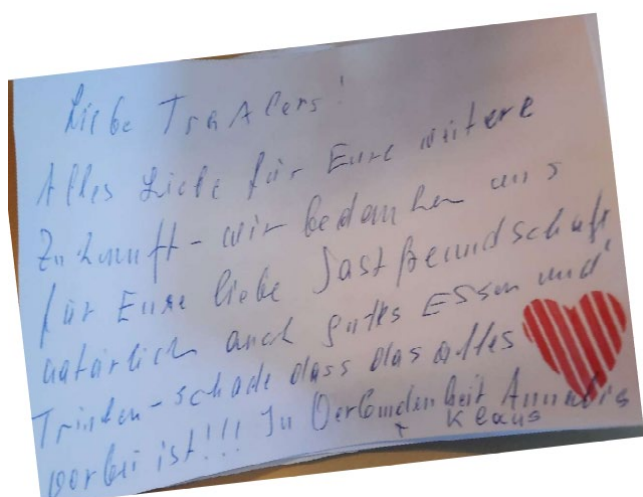 Liebe
Alles Liebe für Eure weitere
Zukunft - wir bedanken uns
für Eure liebe Gastfreundschaft
natürlich auch gutes Essen und
Trinken - schade dass das alles
vorbei ist!!! In Verbundenheit
+ Klaus